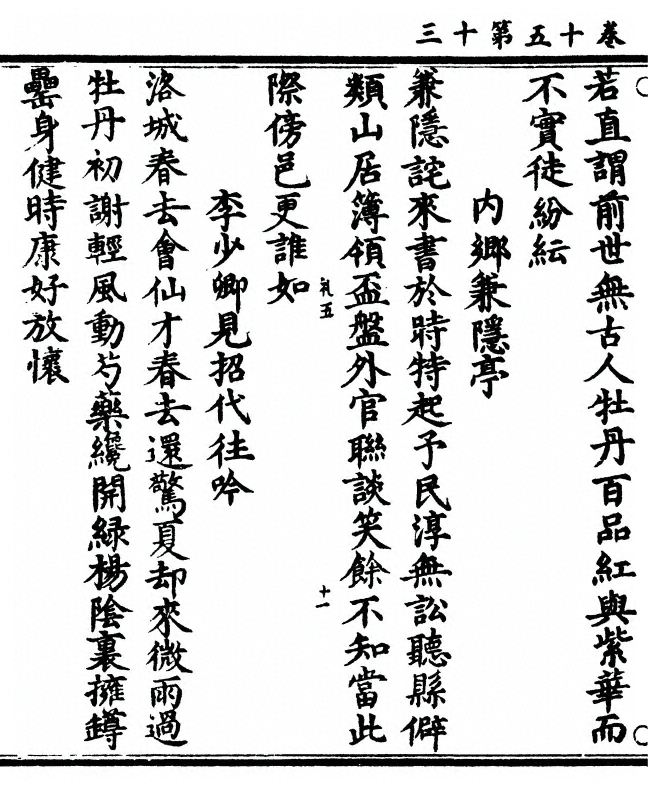 巻十五第十三
若直謂前世無古人牡丹百品紅與紫華而
不實徒紛紜
内鄉兼隱亭
兼隱詫來書於時特起予民淳無訟聽縣僻
類山居簿領盃盤外官聯談笑餘不知當此
礼五
十一
際傍邑更誰如
李少卿見招代往吟
洛城春去會仙才春去還驚夏却來微雨過
牡丹初謝輕風動芍藥纔開緑楊陰裏擁鐏
罍身健時康好放懷